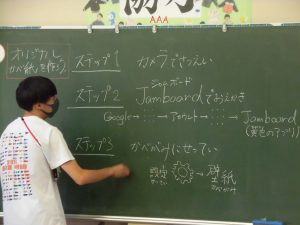 AAA
オリジナル
かべ紙を作ろう
ステップ1 カメラでさつえい
ジャムボード
ステップ2 Jamboardでおえかき
Google→ ⋯ →アカウント→ ⋯ →Jamboard
(黄色のアプリ)
ステップ3 かべがみにせってい
設定 → 壁紙
せってい かべがみ